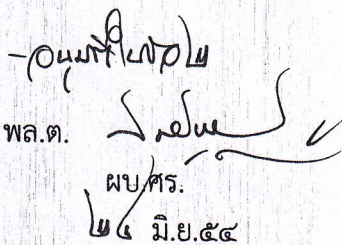 -อนุมัติในข้อ ๒
พล.ต.
ผบ.ศร.
๒๔ มิ.ย.๕๔